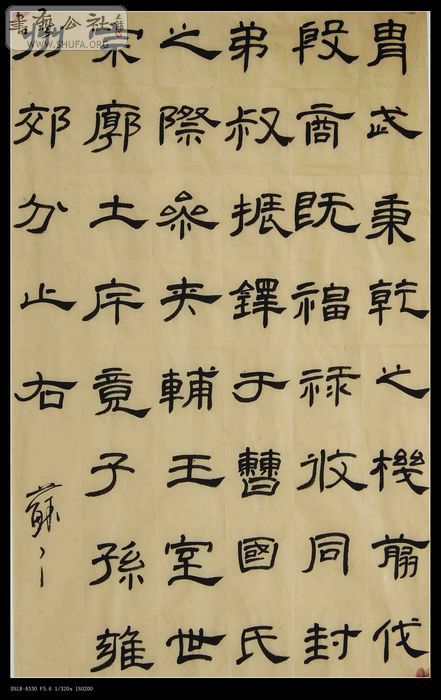 胄武秉乾之機翦伐
殷商既福祿攸同封
弟叔振鐸于曹國氏
之際參夾輔王室世
宗廓土斥竟子孫雍
州郊分止右
書法公社
WWW.SHUFA.ORG
DSLR-A550 F5.6 1/320s ISO200